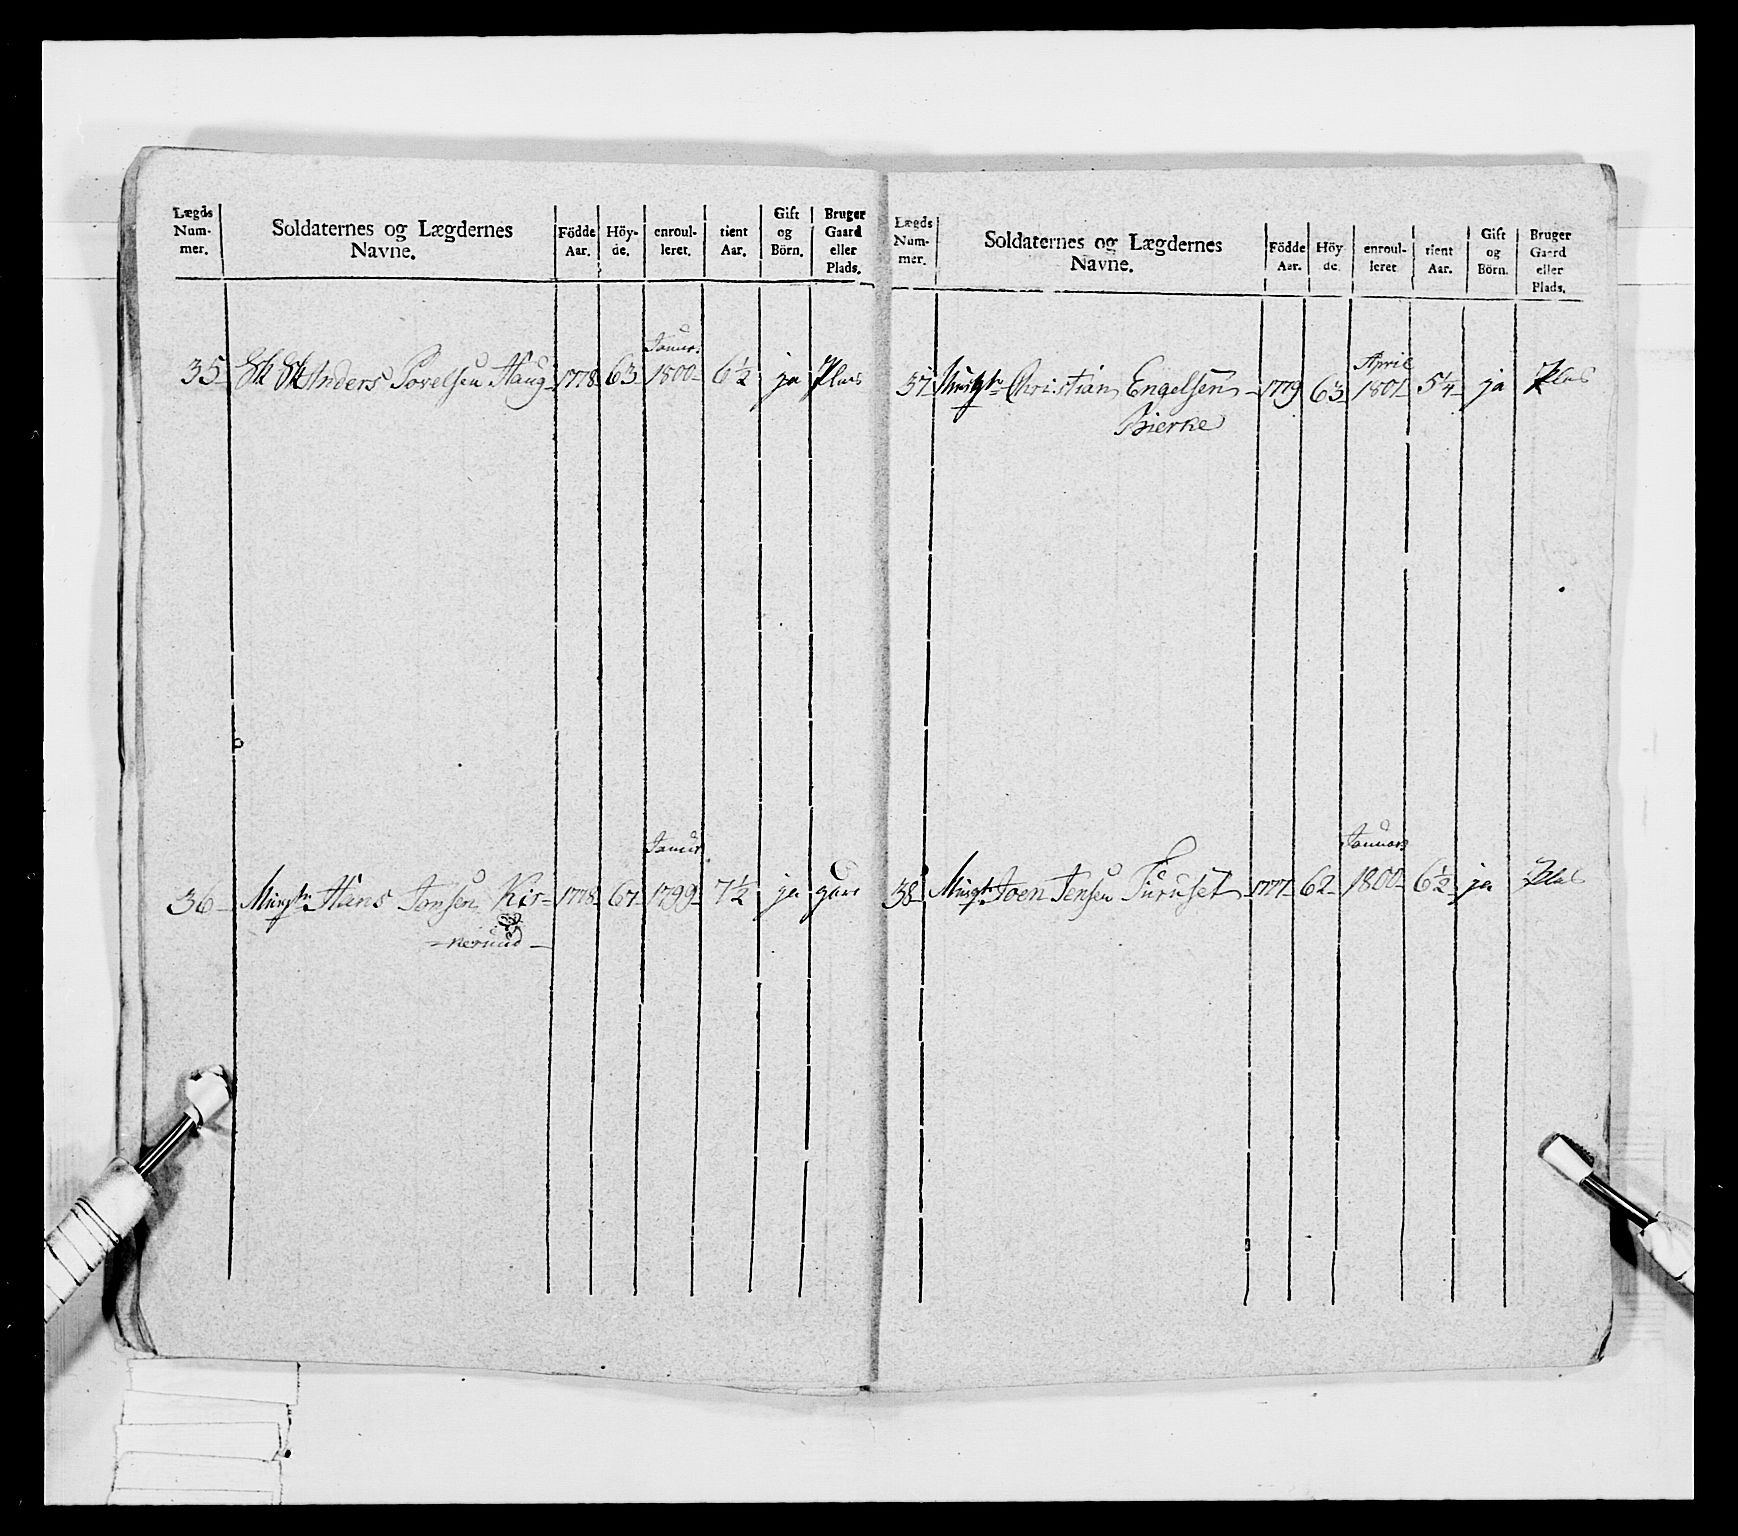 Lægds Num- mer. | Soldaternes og Lægdernes Navne. | Födde Aar. | Höy- de. | enroul- leret. | tient Aar. | Gift og Börn. | Bruger Gaard eller Plads.
Januar.
35 Anders Povelsen Haug 1778 63 1800 6½ ja Plas
Januar.
36 Musqt. Hans Jonsen Kis- 1778 67 1799 7½ ja gaar
nerud
Lægds Num- mer. | Soldaternes og Lægdernes Navne. | Födde Aar. | Höy de. | enroul- leret | tient Aar. | Gift og Börn. | Bruger Gaard eller Plads.
April
37 Musqt. Christian Engelsen 1779 63 1801 5¼ ja Plas
Bierke
Januar
38 Musqt. Joen Jensen Furuset 1777 62 1800 6½ ja Plas